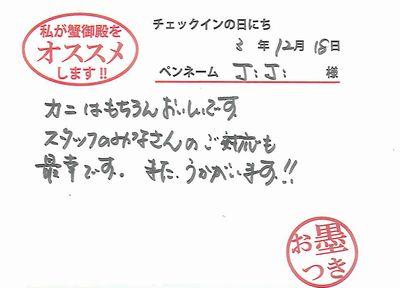 私が蟹御殿を
オススメ
します!!
チェックインの日にち
3 年 12月 18日
ペンネーム J:J: 様
カニはもちろんおいしいです
スタッフのみなさんのご対応も
最幸です。また、うかがいます!!
お墨
つき